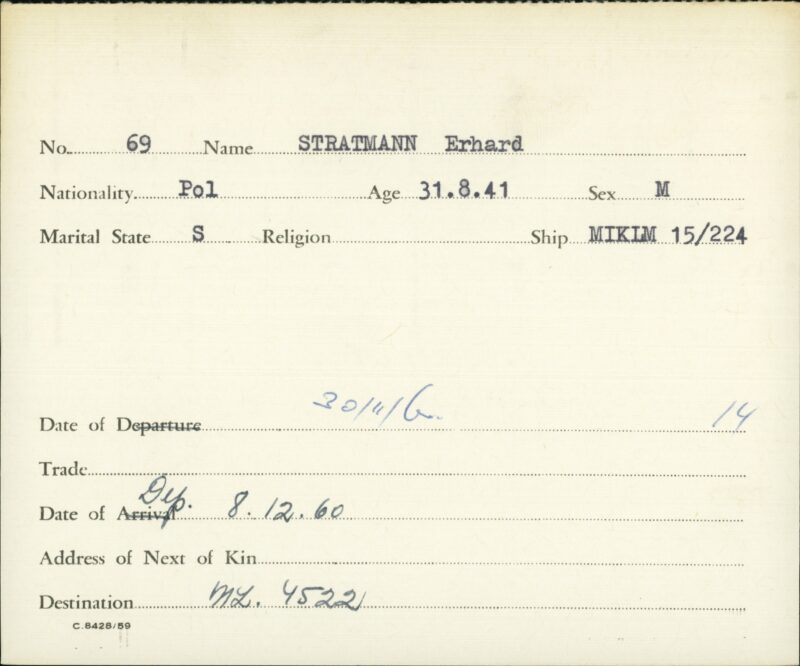 No. 69 Name STRATMANN Erhard
Nationality Pol Age 31.8.41 Sex M
Marital State S Religion Ship MIKLM 15/224
Date of Departure 30/11/60 14
Trade
Dep.
Date of Arrival 8.12.60
Address of Next of Kin
Destination ML. 4522
C.8428/59